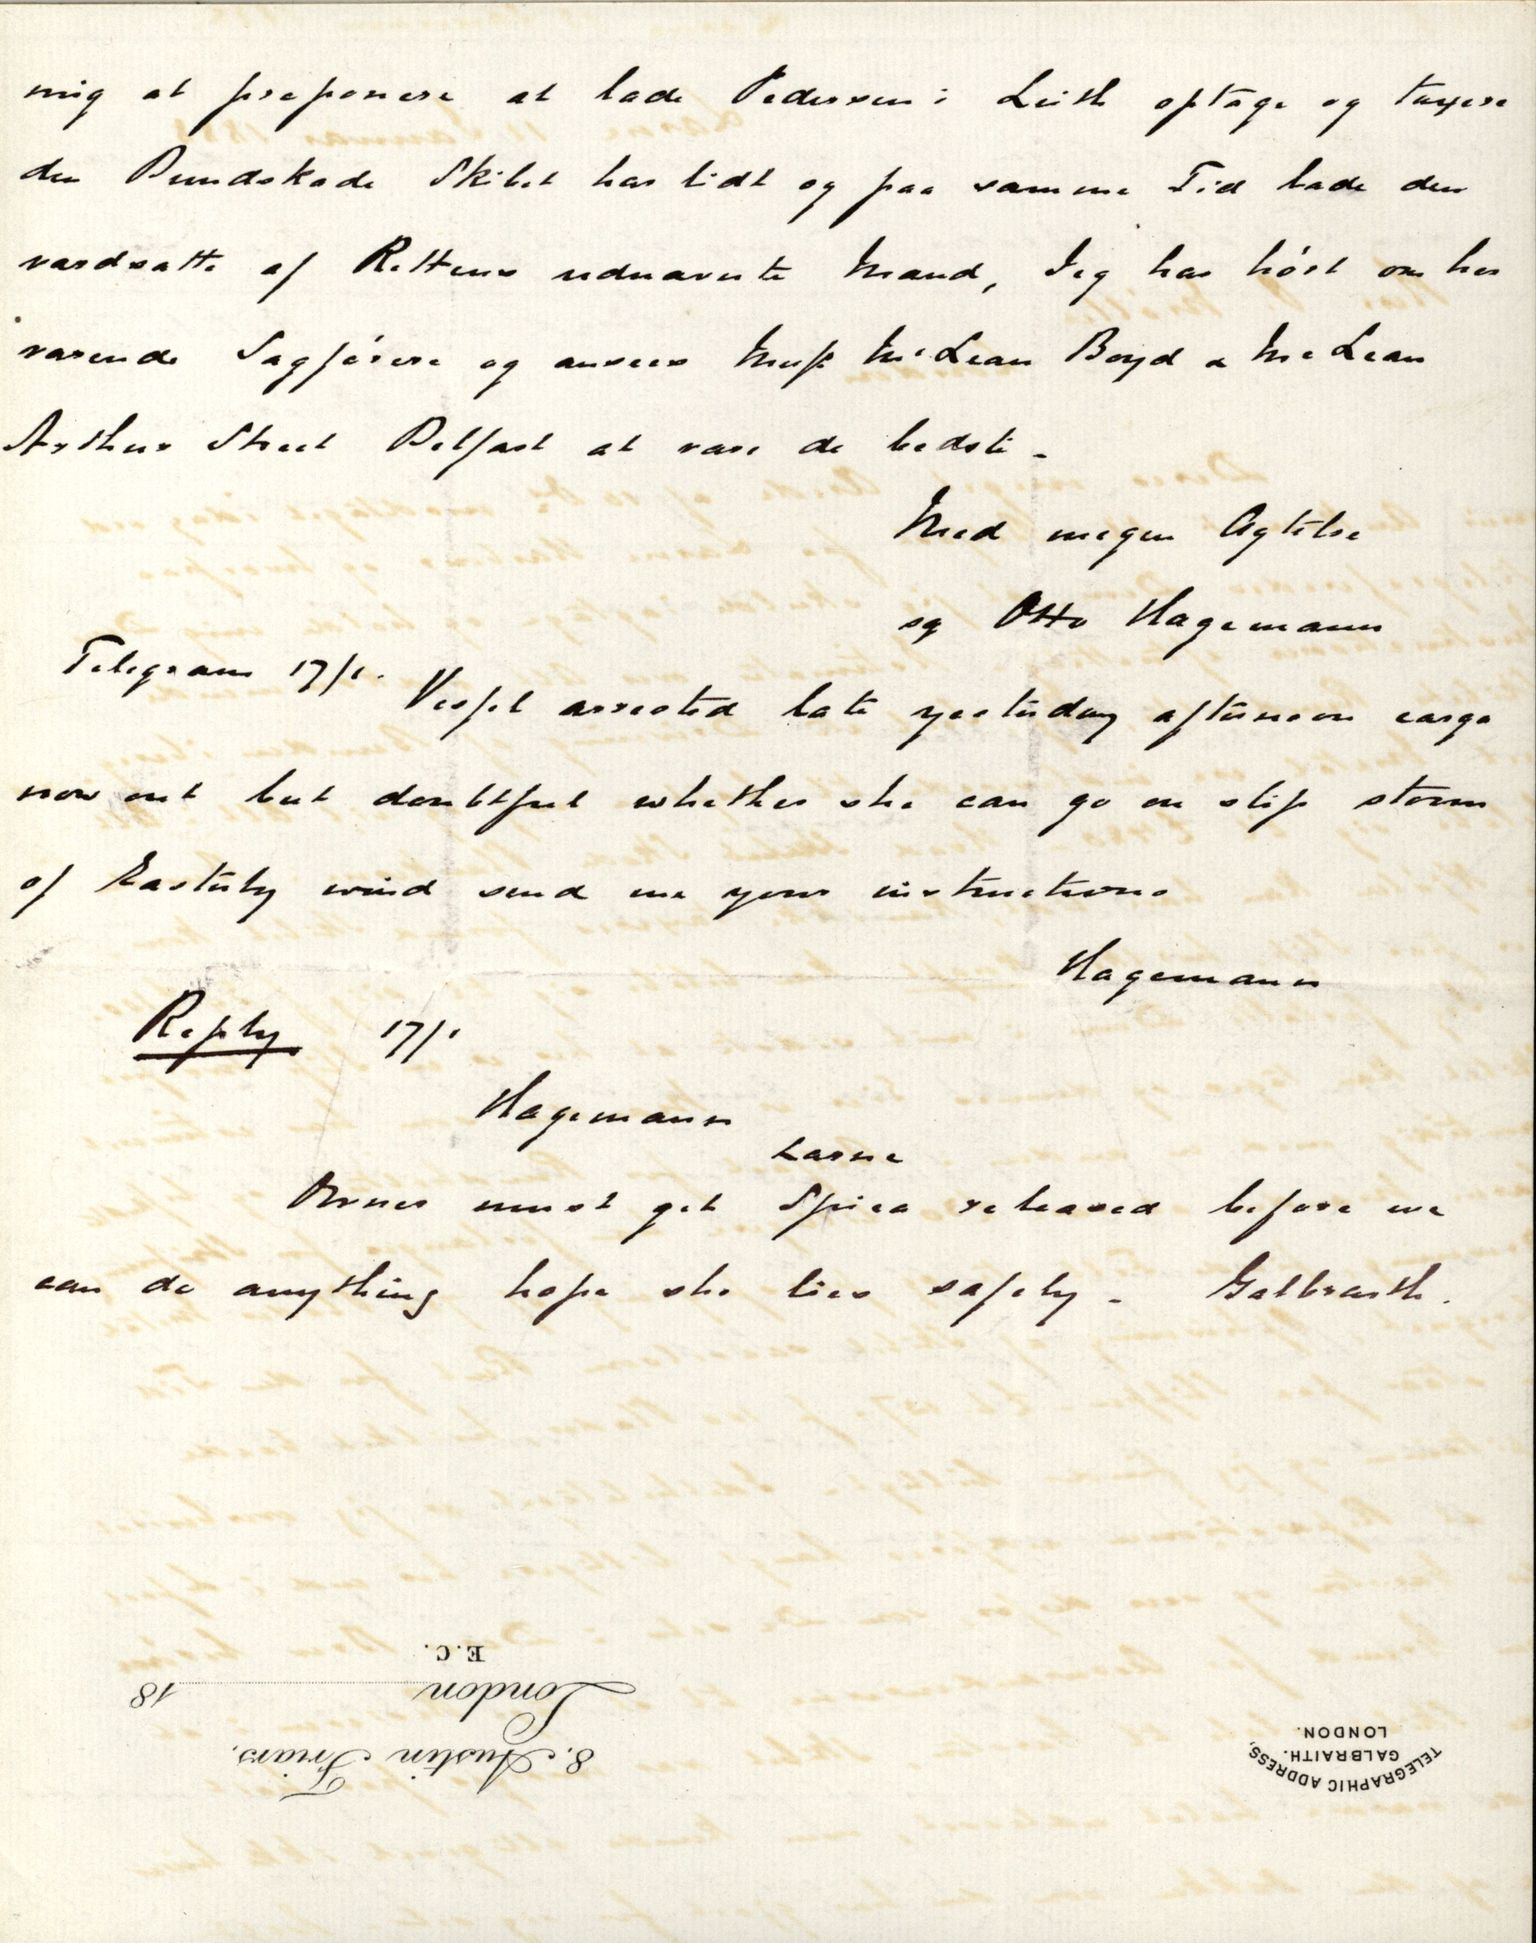 mig at proponere at lade Pedersen i Leith optage og taxere
den Bundskade Skibet har lidt og paa samme Tid lade den
værdsatte af Rettens udnævnte Mænd, Jeg har hört om her
værende Sagförere og ansees Messrs McLean Boyd & McLean
Arthur Street Belfast at være de bedste -
Med megen Agtelse
sg Otto Hagemann
Telegram 17/1.
Vessel arrested late yesterday afternoon cargo
now out but doubtful whether she can go on slip storm
of Easterly wind send me your instructions
Hagemann
Reply 17/1
Hagemann
Larne
must get Spica released before we
can do anything hope she lies safely - Galbraith.
8. Austin Friars.
London
E.C.
18
TELEGRAPHIC ADDRESS,
GALBRAITH.
LONDON.